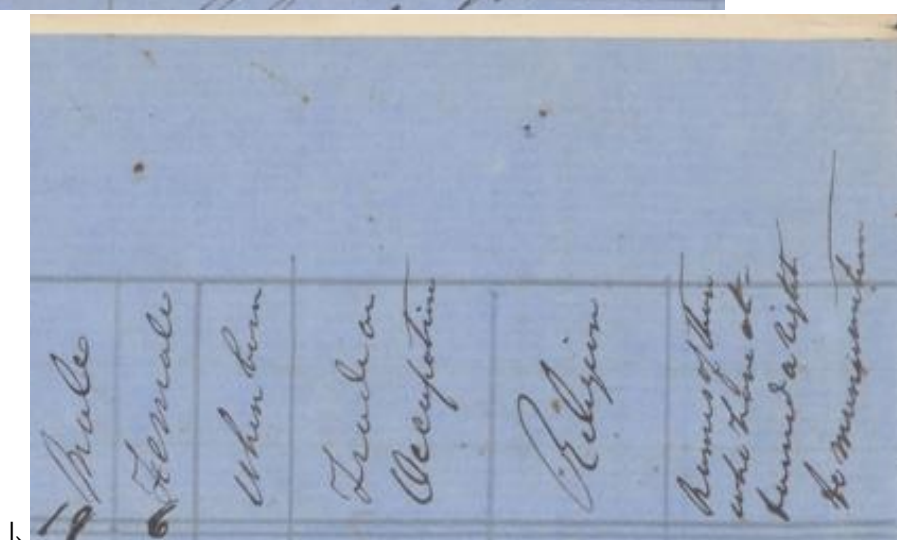 Male
Female
When born
Trade or
Occupation
Religion
Names of those
who have at-
tained a right
to membership